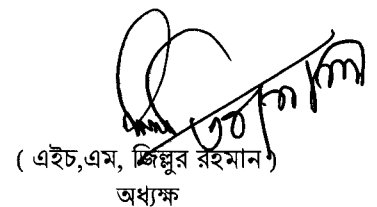 ( এইচ,এম, জিল্লুর রহমান )
অধ্যক্ষ